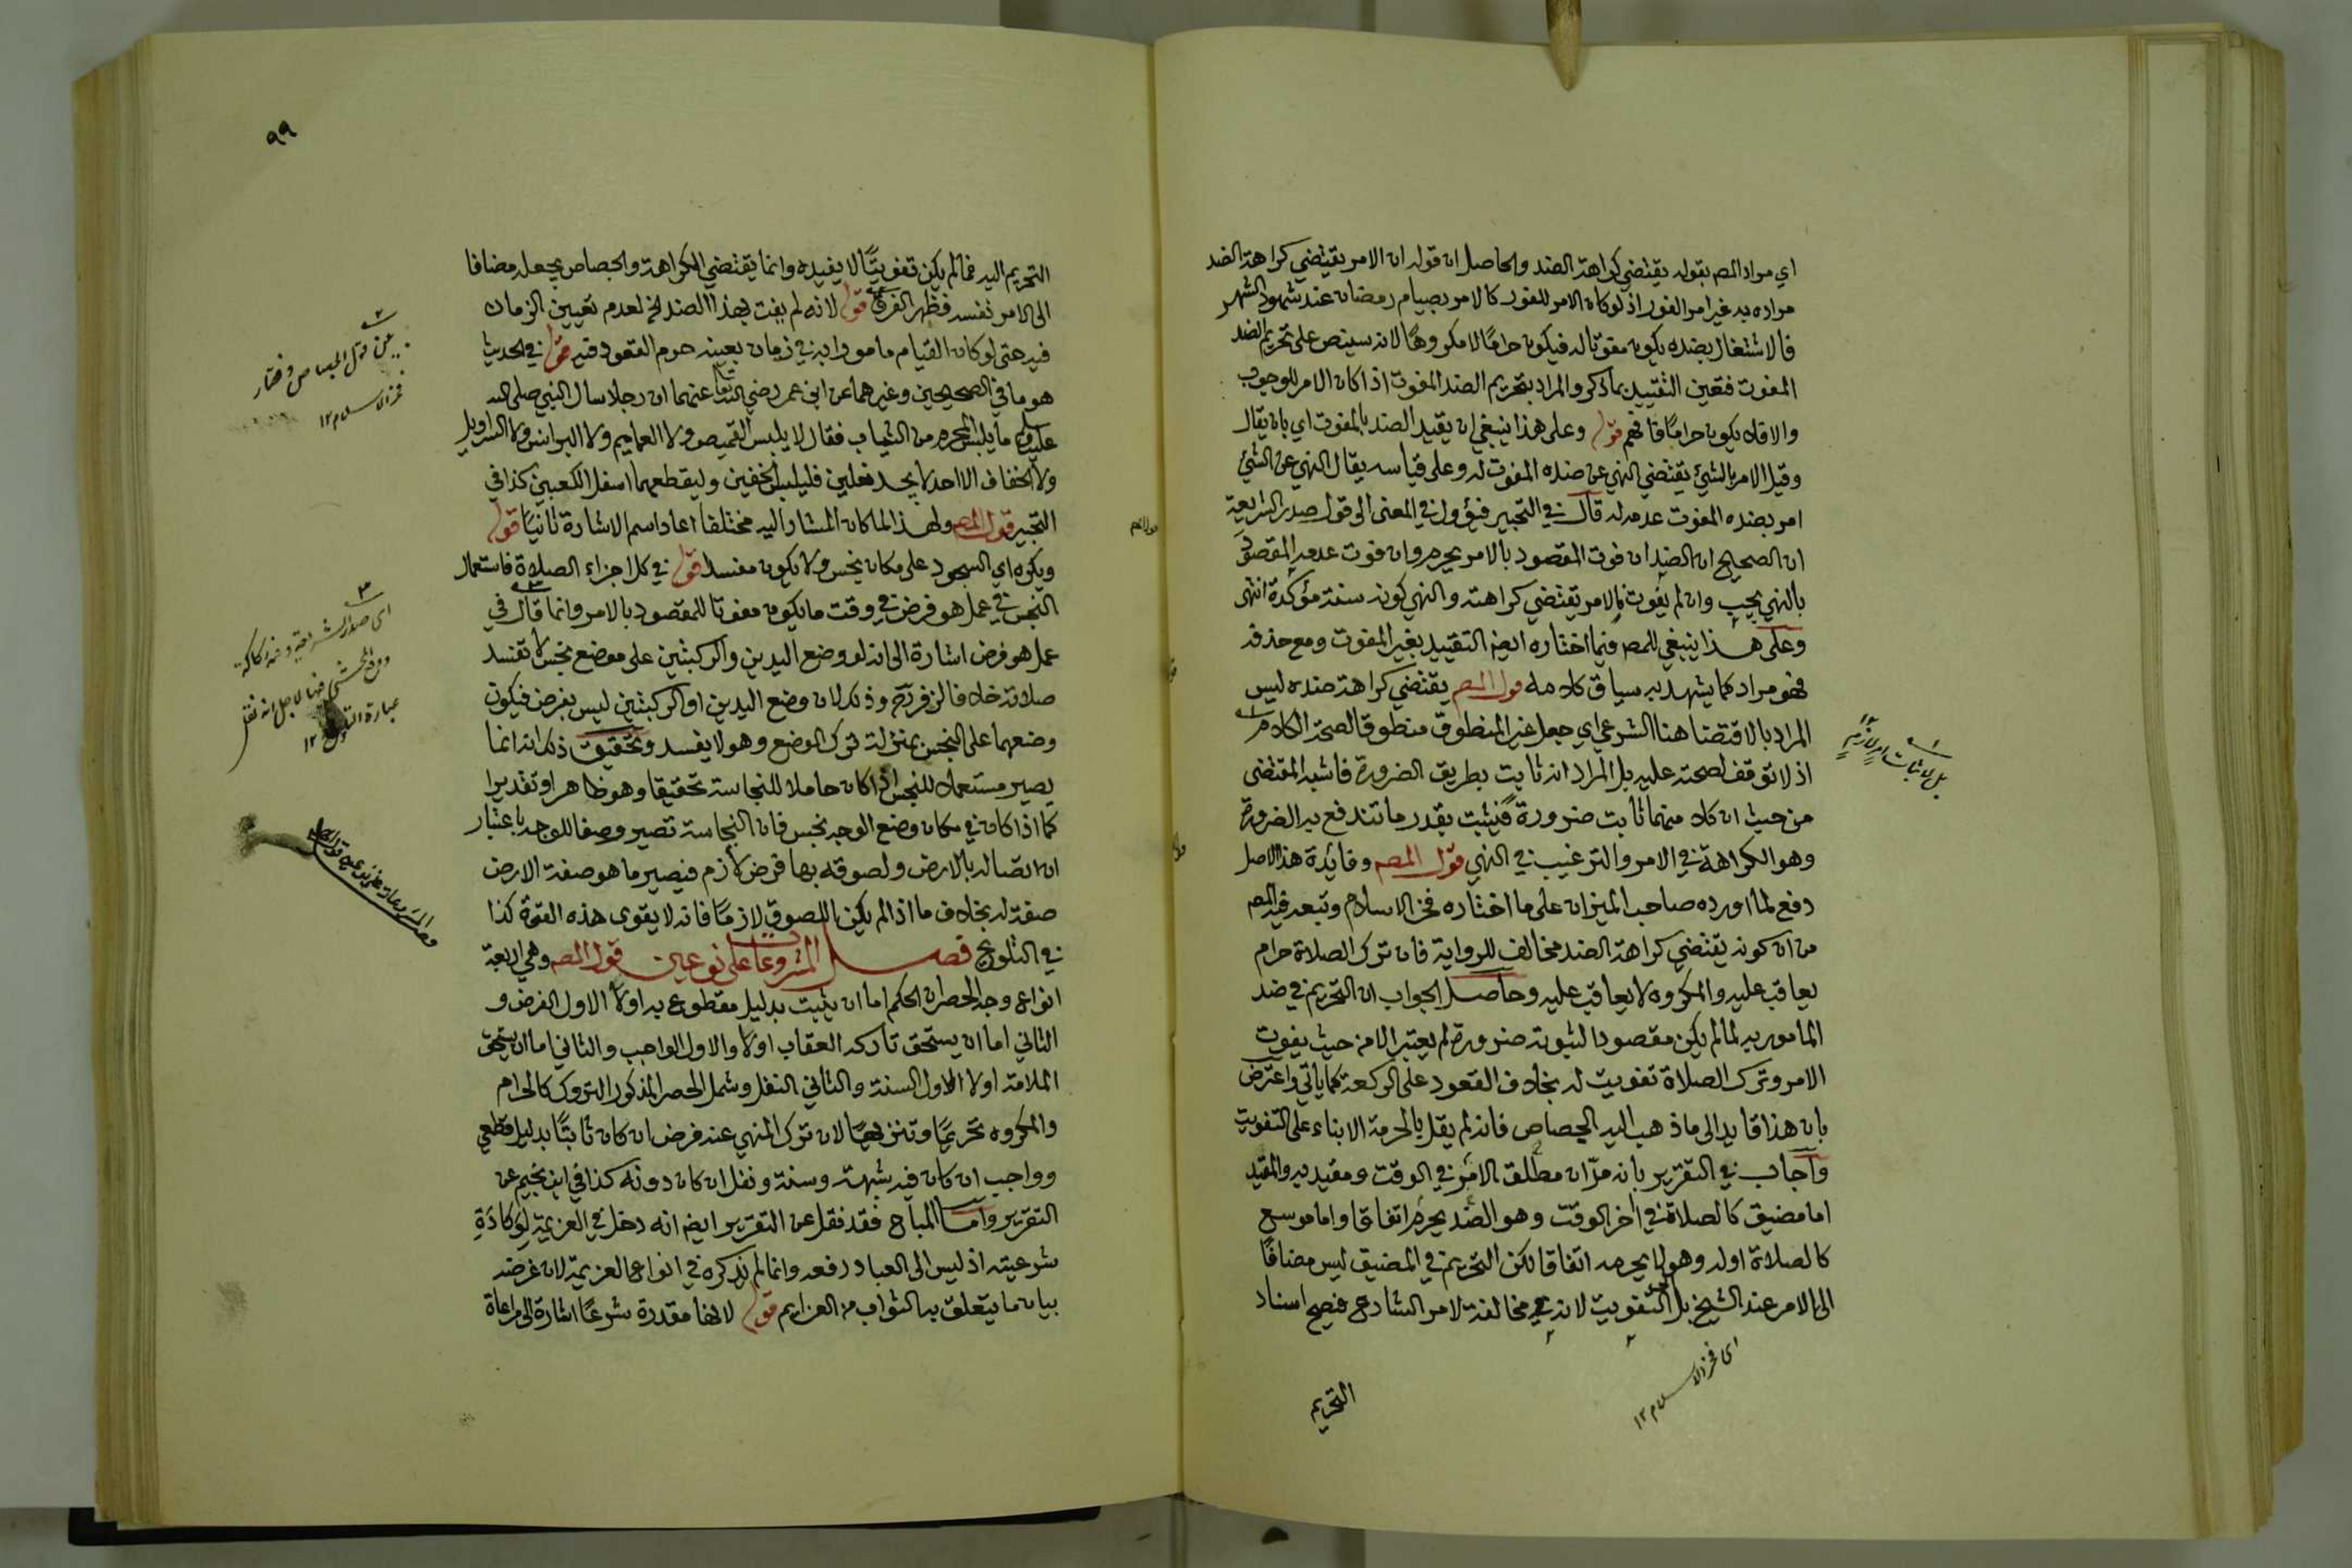 اي مراد المص بقوله يقتضي كراهة الضد والحاصل ان قوله ان الامر يقتضي كراهة الضد
مراده به غير امر الفور اذ لو كان الامر للفور كالامر بصيام رمضان عند شهود الشهر
فالاشتغال بضده يكون مفوتا له فيكون حراما لا مكروها لانه سينص على تحريم الضد
المفوت فتعين التقييد بما ذكر والمراد بتحريم الضد المفوت اذا كان الامر للوجوب
والا فلا يكون حراما فافهم قوله وعلى هذا ينبغي ان يقيد الضد بالمفوت اي بان يقال
وقيل الامر بالشئ يقتضي النهي عن ضده المفوت له وعلى قياسه يقال النهي عن الشئ
امر بضده المفوت عدمه له قال في التحبير فيؤول في المعنى الى قول صدر الشريعة
ان الصحيح ان الضد ان فوت المقصود بالامر يحرم وان فوت عدمه المقصود
بالنهي يجب وان لم يفوت فالامر يقتضي كراهته والنهي كونه سنة مؤكدة انتهى
وعلى هذا ينبغي للمص فيما اختاره ايضا التقييد بغير المفوت ومع حذفه
فهو مراد كما يشهد به سياق كلامه قول المص يقتضي كراهة ضده ليس
المراد بالاقتضا هنا الشرعي اي جعل غير المنطوق منطوقا لصحة الكلام
اذ لا توقف لصحته عليه بل المراد انه ثابت بطريق الضرورة فاشبه المقتضى
من حيث ان كلا منهما ثابت ضرورة فيثبت بقدر ما تندفع به الضرورة
وهو الكراهة في الامر والترغيب في النهي قول المص وفائدة هذا الاصل
دفع لما اورده صاحب الميزان على ما اختاره فخر الاسلام وتبعه فيه المص
من ان كونه يقتضي كراهة الضد مخالف للرواية فان ترك الصلاة حرام
يعاقب عليه والمكروه لا يعاقب عليه وحاصل الجواب ان التحريم في ضد
المامور به لما لم يكن مقصودا لثبوته ضرورة لم يعتبر الا من حيث يفوت
الامر وترك الصلاة تفويت له بخلاف القعود على الركعة كما ياتي واعترض
بان هذا قايد الى ما ذهب اليه الجصاص فانه لم يقل بالحرمة الا بناء على التفويت
واجاب في التقرير بانه مر ان مطلق الامر في الوقت ومقيد به والمقيد
اما مضيق كالصلاة في اخر الوقت وهو الضد يحرم اتفاقا واما موسع
كالصلاة اوله وهو لا يحرمه اتفاقا لكن التحريم في المضيق ليس مضافا
الى الامر عند الشيخ بل التفويت لانه في مخالفة لامر الشارع فيصح اسناد
التحريم
اى فخر الاسلام ١٢
بل لاثبات امر لازم
٩٩
التحريم اليه فما لم يكن تفويتا لا يفيده وانما يقتضي الكراهة والجصاص يجعله مضافا
الى الامر نفسه فظهر الفرق قوله لانه لم يفت بهذا الضد الخ لعدم تعيين الزمان
فيه حتى لو كان القيام مامورا به في زمان بعينه حرم القعود فيه قوله في الحديث
هو ما في الصحيحين وغيرهما عن ابن عمر رضي الله تعالى عنهما ان رجلا سال النبي صلى الله
عليه وسلم ما يلبس المحرم من الثياب فقال لا يلبس القميص ولا العمايم ولا البرانس ولا السراويل
ولا الخفاف الا احد لا يجد نعلين فليلبس الخفين وليقطعهما اسفل الكعبين كذا في
التحبير قول المص ولهذا لما كان المشار اليه مختلفا اعاد اسم الاشارة ثانيا قوله
ويكره اي السجود على مكان نجس ولا يكون مفسدا قوله في كل اجزاء الصلاة فاستعمال
النجس في عمل هو فرض في وقت ما يكون مفوتا للمقصود بالامر وانما قال في
عمل هو فرض اشارة الى انه لو وضع اليدين والركبتين على موضع نجس لا تفسد
صلاته خلافا لزفر وذلك لان وضع اليدين او الركبتين ليس بفرض فيكون
وضعهما على النجس بمنزلة ترك الوضع وهو لا يفسد وتحقيق ذلك انه انما
يصير مستعملا للنجس اذا كان حاملا للنجاسة تحقيقا وهو ظاهر او تقديرا
كما اذا كان في مكان وضع الوجه نجس فان النجاسة تصير وصفا للوجه باعتبار
ان اتصاله بالارض ولصوقه بها فرض لازم فيصير ما هو صفة الارض
صفة له بخلاف ما اذا لم يكن اللصوق لازما فانه لا يقوى هذه القوة كذا
في التلويح فصل المشروعات على نوعين قول المص وهي اربعة
انواع وجه الحصر ان الحكم اما ان يثبت بدليل مقطوع به اولا الاول الفرض و
الثاني اما ان يستحق تاركه العقاب اولا والاول الواجب والثاني اما ان يستحق
الملامة اولا الاول السنة والثاني النفل وشمل الحصر المذكور التروك كالحرام
والمكروه تحريما وتنزيها لان ترك المنهي عنه فرض ان كان ثابتا بدليل قطعي
وواجب ان كان فيه شبهة وسنة ونفل ان كان دونه كذا في ابن نجيم عن
التقرير واما المباح فقد نقل عن التقرير ايضا انه دخل في العزيمة لوكادة
شرعيته اذ ليس الى العباد رفعه وانما لم نذكره في انواع العزيمة لان غرضه
بيان ما يتعلق به الثواب من العزايم قوله لانها مقدرة شرعا اشارة الى مراعاة
بين قول الجصاص ومختار
فخر الاسلام ١٢
اى صدر الشريعة